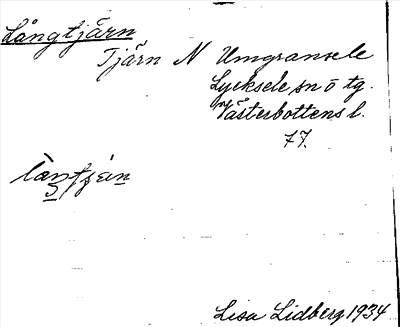 Långtjärn
Tjärn N Umgransele
Lycksele sn o tg.
Västerbottens l.
77.
Lisa Lidberg 1934